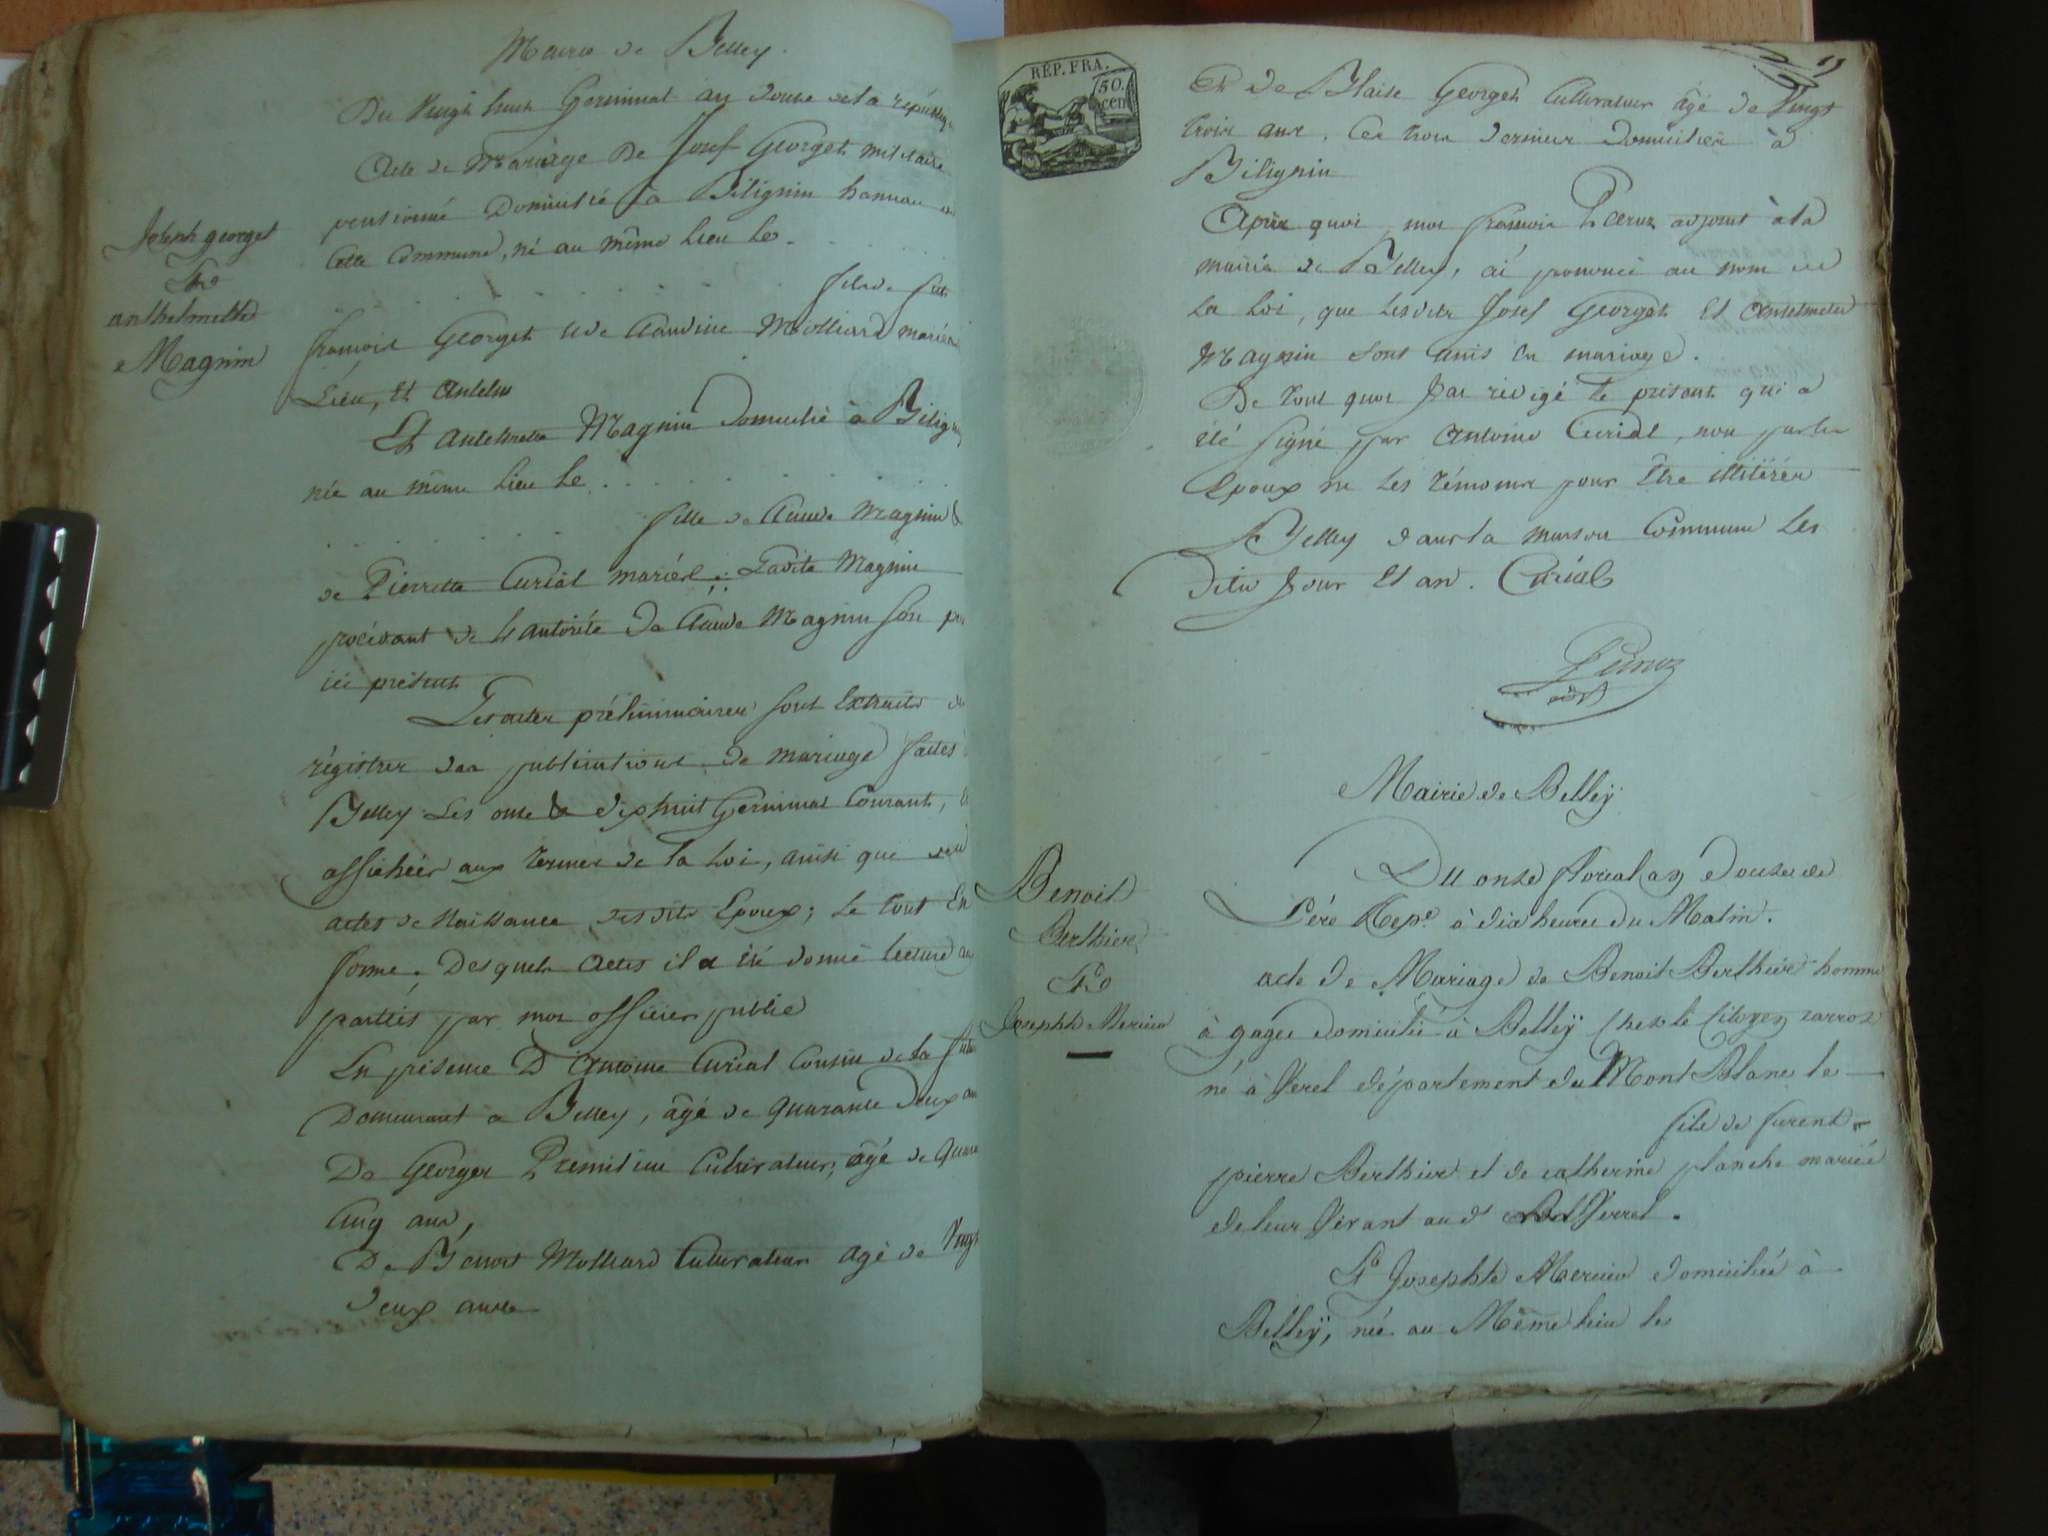 Mairie de Belley
Du vingt huit Germinal an douze de la républiq
Acte de Mariage De Josef Georget militaire
pensionné Domicilié à Bilignin hameau de
Cette Commune, né au même Lieu le
fils de feu
françois Georget et de Claudine Molliard mariés
Lieu, Et Antelm
Et Antelmette Magnin Domicilié à Bilign
née au même Lieu le
fille de Claude Magnin &
de Pierrette Curial mariés. Ladite Magnin
procédant de L'autorité De Claude Magnin son pè
ici présent
Les actes préliminaires sont Extraits du
régistre des publications de mariage faites
Belley Les onze & dixhuit Germinal Courant,
affichées aux termes de la Loi, ainsi que des
actes de Naissance desdits Epoux; le tout En
forme. Desquels actes il a été donné lecture au
parties par moi officier public
En présence D'Antoine Curial Cousin de la
Demeurant à Belley, âgé de quarante deux an
De George Cultivateur, âgé de
Cinq ans,
De Benoit Molliard Cultivateur agé de Vingt
deux ans
Joseph georget
&
anthelmette
Magnin
REP. FRA.
50.
cen
Et De Blaise Georget Cultivateur âgé de Vingt
trois ans. Ces trois derniers domiciliés à
Bilignin
Après quoi, moi françois adjoint à la
mairie de Belley, ai prononcé au nom de
La Loi, que Lesdits Josef Georget Et Antelmette
Magnin sont unis en mariage.
De tout quoi J'ai rédigé le présent qui a
été signé par Antoine Curial, non par les
Epoux ni les témoins pour Etre illitérés
à Belley dans la maison Commune Les
Dits Jour Et an. Curial
adjt
Mairie de Belleÿ
Du onze floreal an Douze de
L'ére Repe. à dix heures du Matin.
acte de Mariage de Benoit Berthier homme
à gages domicilié à Belleÿ chez le Citoyen
né à Verel département du Mont Blanc le
fils de furent
pierre Berthier et de catherine planche mariés
de leur vivant aud Verrel.
Et Josephte Mercier domiciliée à
Belleÿ, née au Même lieu le
Benoit
Berthier
Et
Josephte Mercier